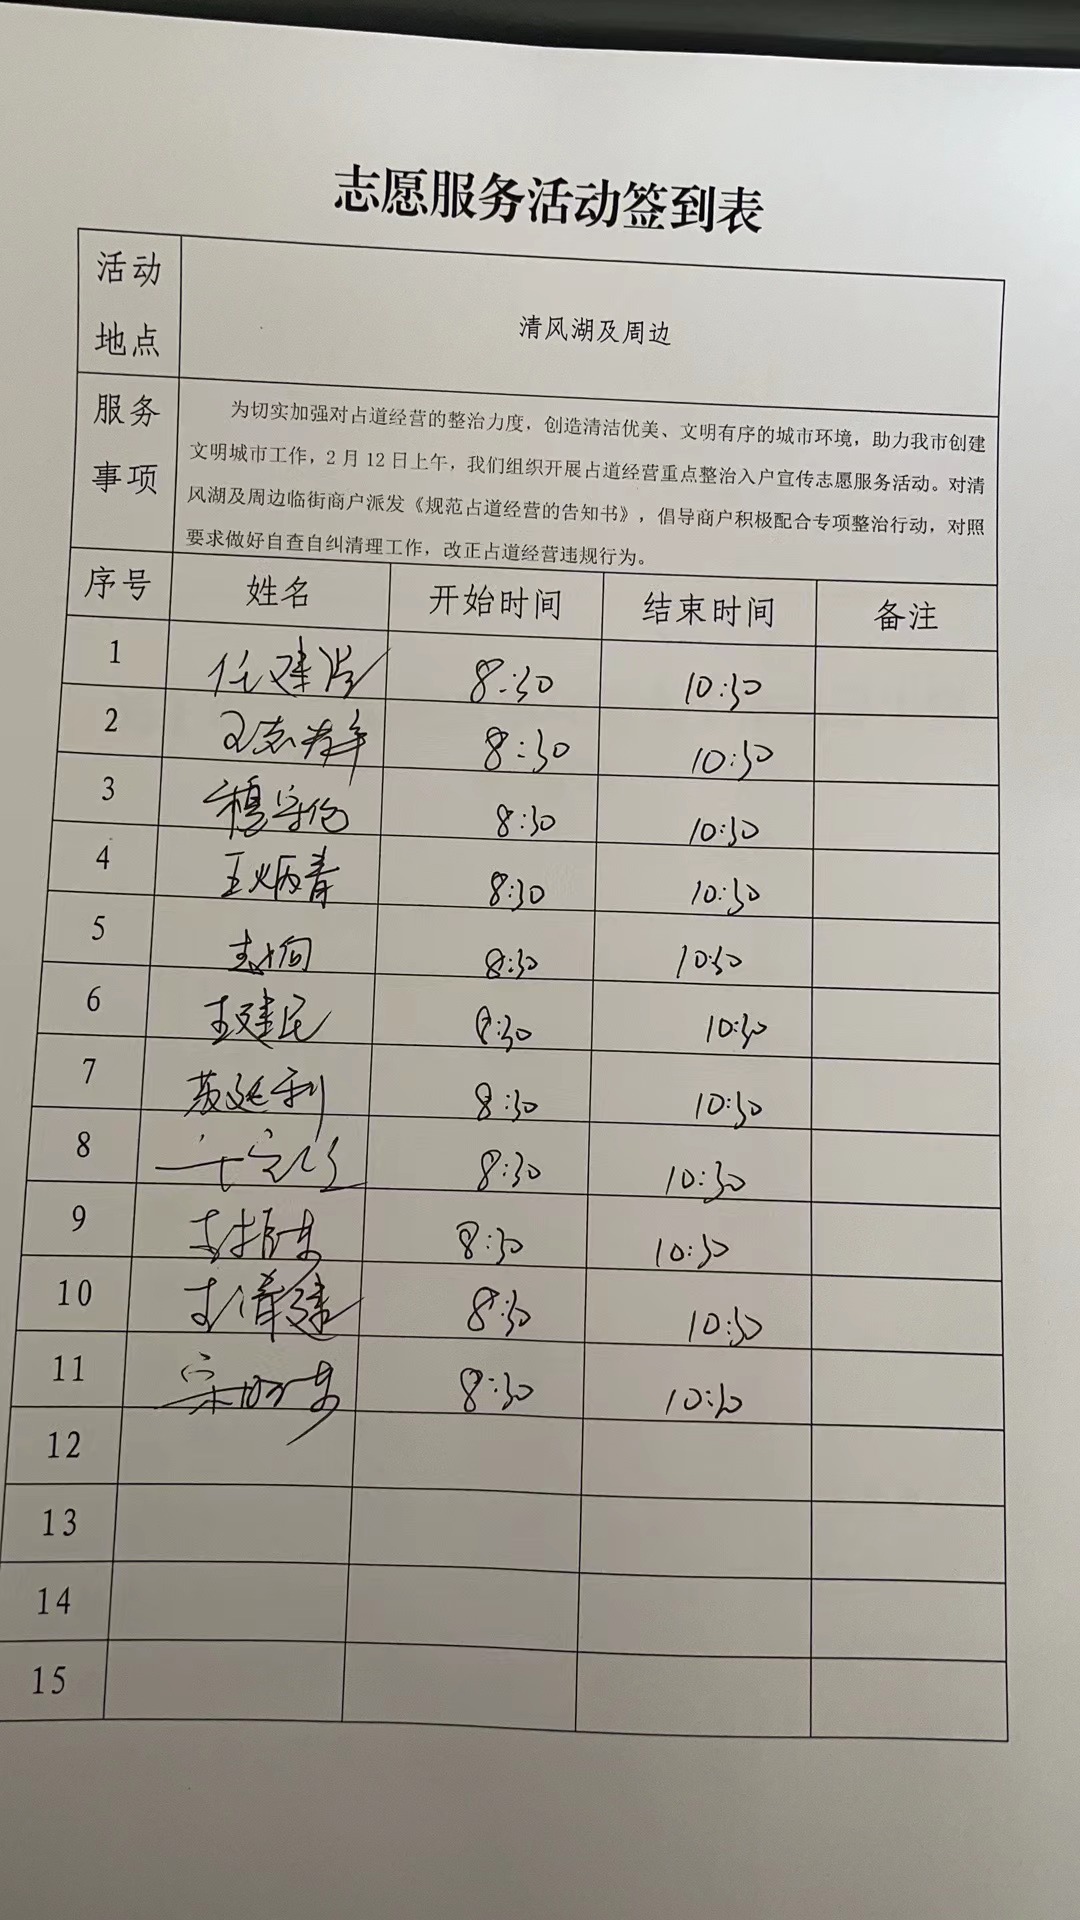 志愿服务活动签到表
活动地点 清风湖及周边
服务事项
为切实加强对占道经营的整治力度，创造清洁优美、文明有序的城市环境，助力我市创建
文明城市工作，2月12日上午，我们组织开展占道经营重点整治入户宣传志愿服务活动。对清
风湖及周边临街商户派发《规范占道经营的告知书》，倡导商户积极配合专项整治行动，对照
要求做好自查自纠清理工作，改正占道经营违规行为。
序号 姓名 开始时间 结束时间 备注
1 任建 8:30 10:30
2 8:30 10:30
3 穆守伦 8:30 10:30
4 王炳青 8:30 10:30
5 8:30 10:30
6 王建民 8:30 10:30
7 苏延利 8:30 10:30
8 8:30 10:30
9 8:30 10:30
10 8:30 10:30
11 8:30 10:30
12
13
14
15